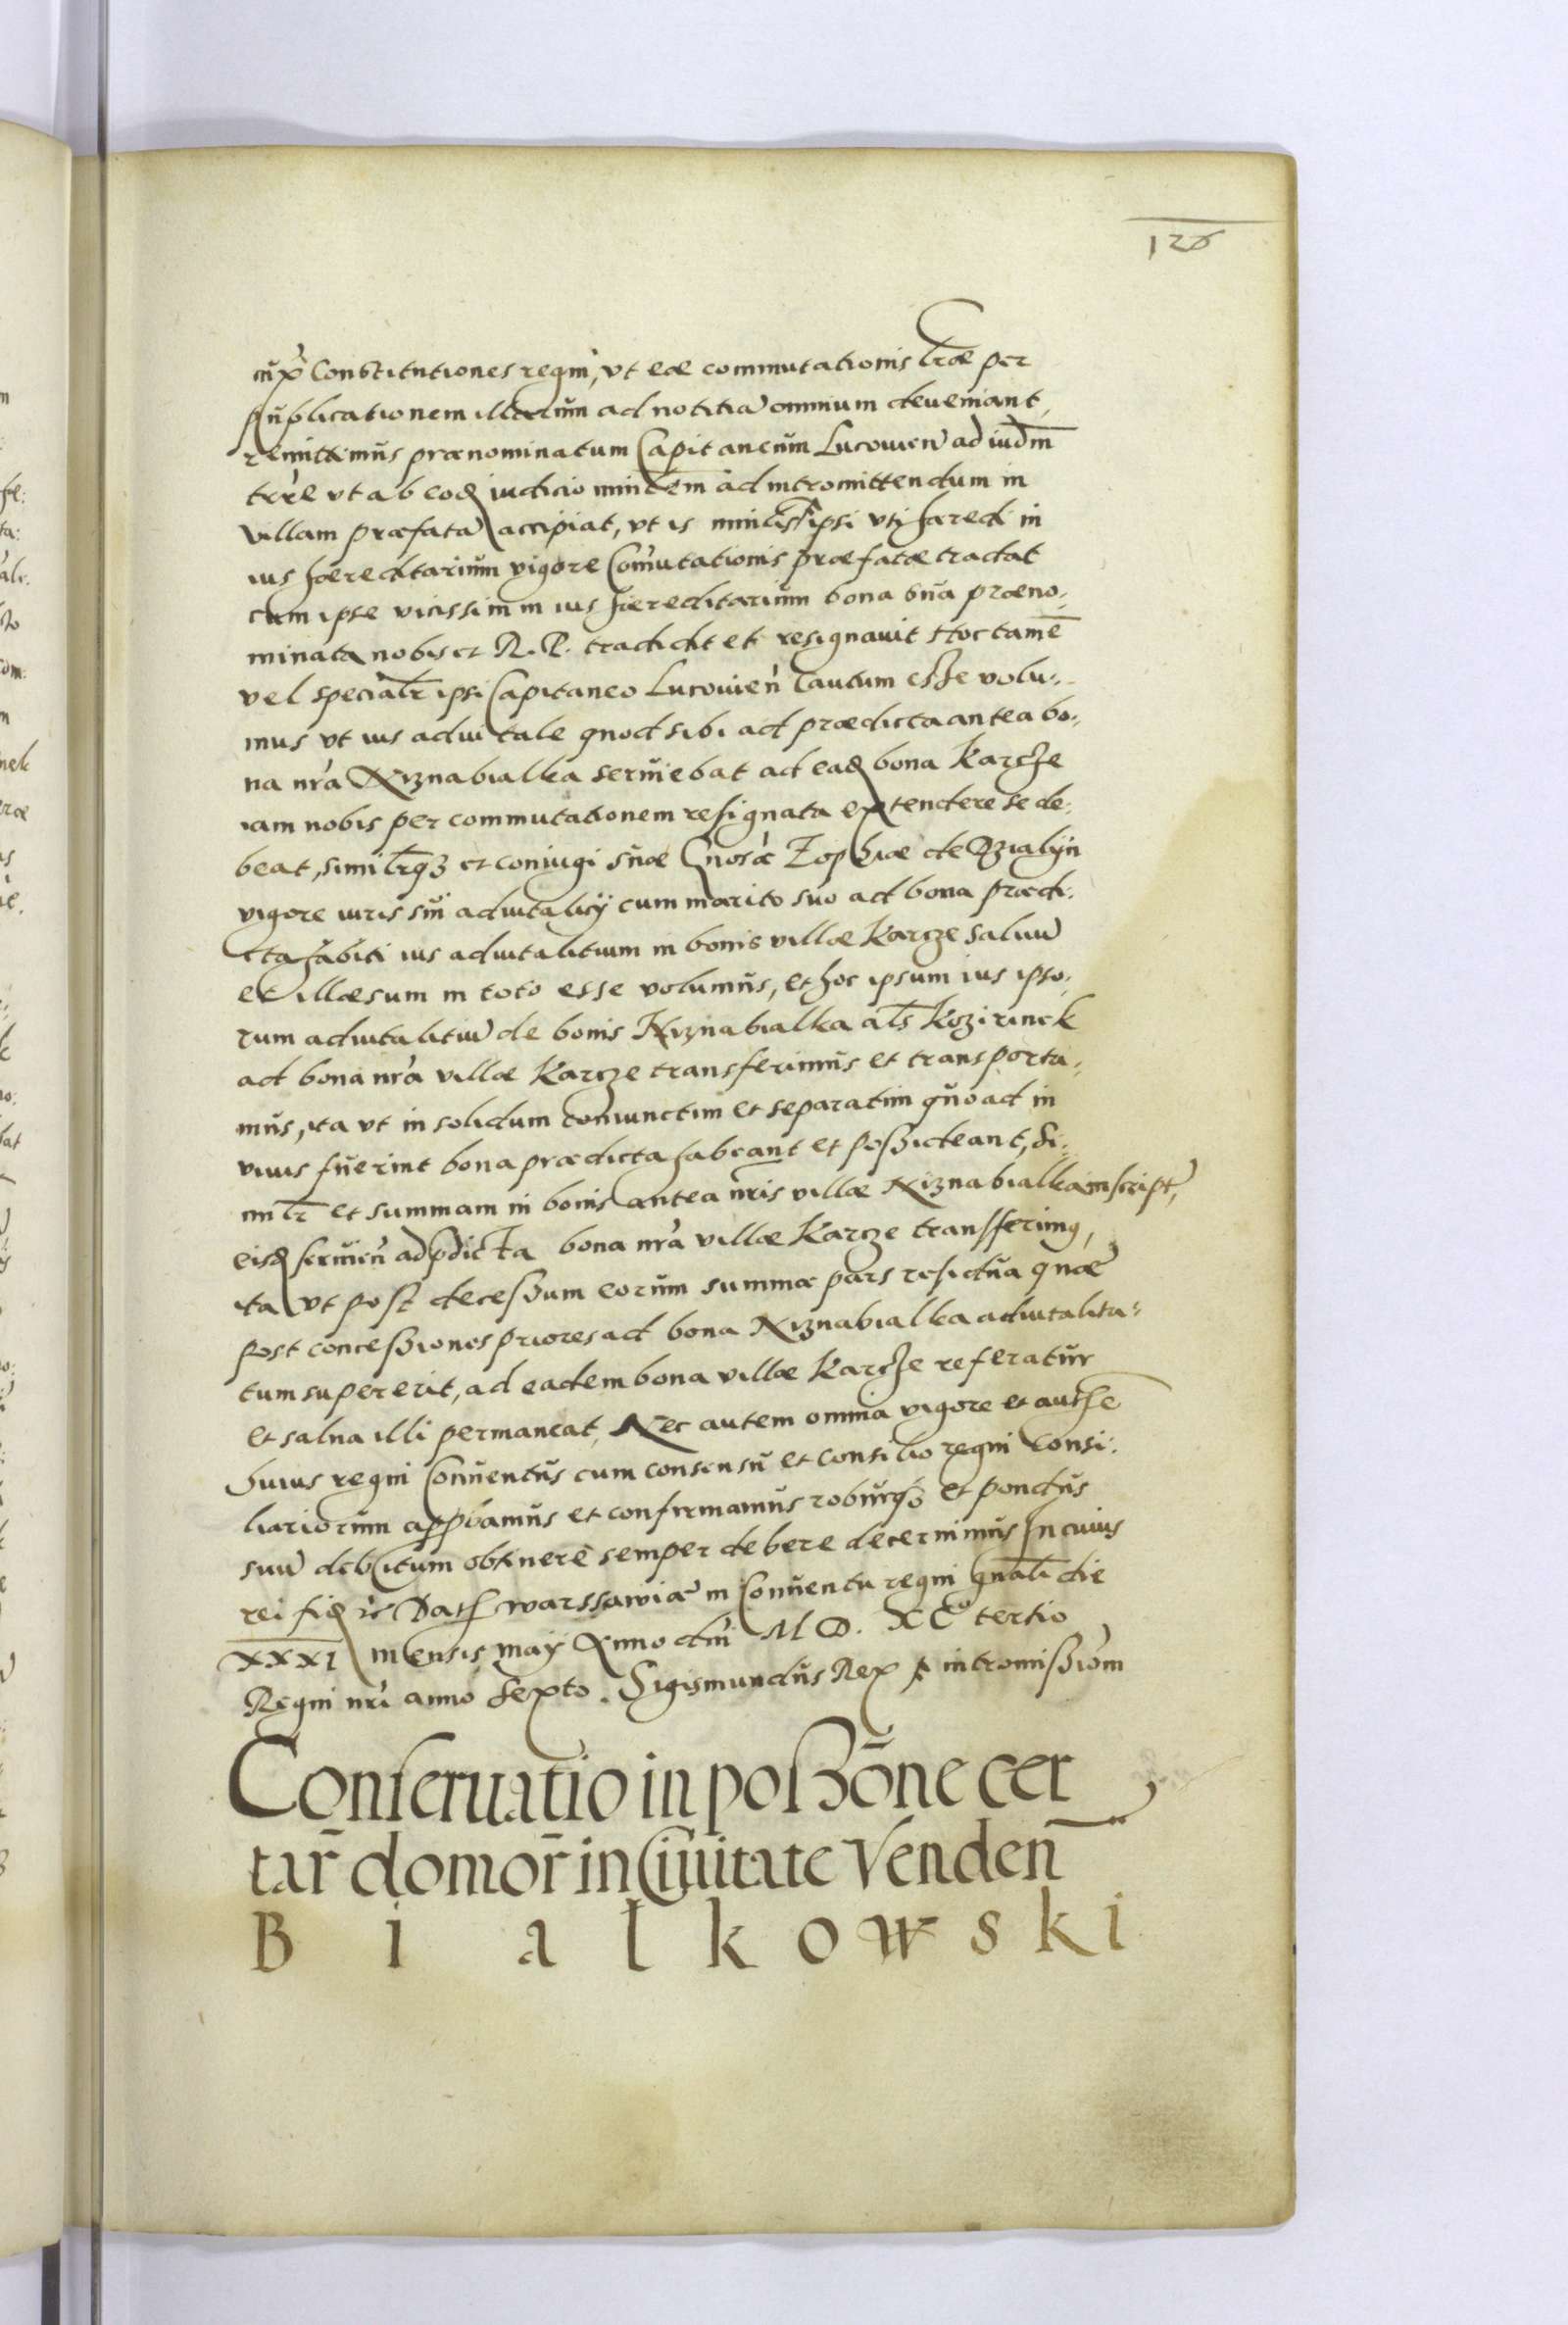 126
iux̃ Constitutiones regni, vt eæ commutationis lr̃æ per
publicationem illarum ad notitiã omnium deueniant,
remittimus prænominatum Capitaneum Lucouieñ ad iud̃m
terr̃e vt ab eod iudicio minlẽm ad intromittendum in
villam præfatã accipiat, vt is ipsi vti hæredi in
ius hæreditarium vigore Com̃utationis præfatæ tradat
cum ipse vicissim in ius hæreditarium bona sua præno:
minata nobis et R. P. tradidit et resignauit Hoc tamẽ
vel specialr̃ ipsi Capitaneo Lucouieñ cautum esse volu:
mus vt ius aduitale quod sibi ad prædicta antea bo:
na nr̃a Niznabialka seruiebat ad ead bona Karcze
iam nobis per commutationem resignata extendere se de:
beat, similrq3 et coniugi suæ Gnosæ Zophiæ de Dzialijn
vigore iuris sui aduitalicij cum marito suo ad bona prædi:
cta habiti ius aduitalitium in bonis villæ Karcze saluũ
et illæsum in toto esse volumus, et hoc ipsum ius ipso:
rum aduitalitiũ de bonis Niznabialka al̃s Kozirinek
ad bona nr̃a villæ Karcze transferimus et transporta:
mus, ita vt in solidum coniunctim et separatim quoad in
viuis fuerint bona prædicta habeant et possideant, Si:
milr̃ et summam in bonis antea nr̃is villæ Niznabialka inscript,
eisd seruieñ ad p̃dicta bona nr̃a villæ Karcze transferimus,
ita vt post decessum eorum summæ pars residua quæ
post concessiones priores ad bona Niznabialka aduitalita:
tum supererit, ad eadem bona villæ Karcze referatur
et salua illi permaneat, Nec autem omnia vigore et authẽ
huius regni Conuentus cum consensu et consilio regni Consi:
liariorum appbamus et confirmamus roburq3 et pondus
suũ debitum obtinere semper debere decernimus In cuius
rei fid rc Dat Warssawiæ in Conuentu regni gnali die
XXXI mensis maij Anno dni M D. XCo tertio
Regni nr̃i anno Sexto. Sigismundus Rex intromissiom
Conseruatio in poss̃one cer
tar̃ domor̃ in Ciuitate Vendeñ
Bialkowski